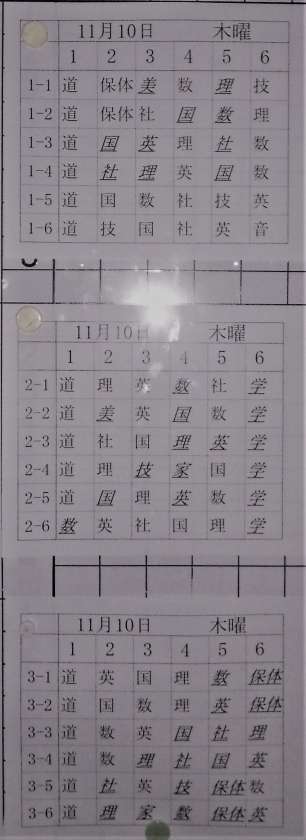 11月10日 木曜
1 2 3 4 5 6
1-1 道 保体 美 数 理 技
1-2 道 保体 社 国 数 理
1-3 道 国 英 理 社 数
1-4 道 社 理 英 国 数
1-5 道 国 数 社 技 英
1-6 道 技 国 社 英 音
11月10日 木曜
1 2 3 4 5 6
2-1 道 理 英 数 社 学
2-2 道 美 英 国 数 学
2-3 道 社 国 理 英 学
2-4 道 理 技 家 国 学
2-5 道 国 理 英 数 学
2-6 数 英 社 国 理 学
11月10日 木曜
1 2 3 4 5 6
3-1 道 英 国 理 数 保体
3-2 道 国 数 理 英 保体
3-3 道 数 英 国 社 理
3-4 道 数 理 社 国 英
3-5 道 社 英 技 保体 数
3-6 道 理 家 数 保体 英